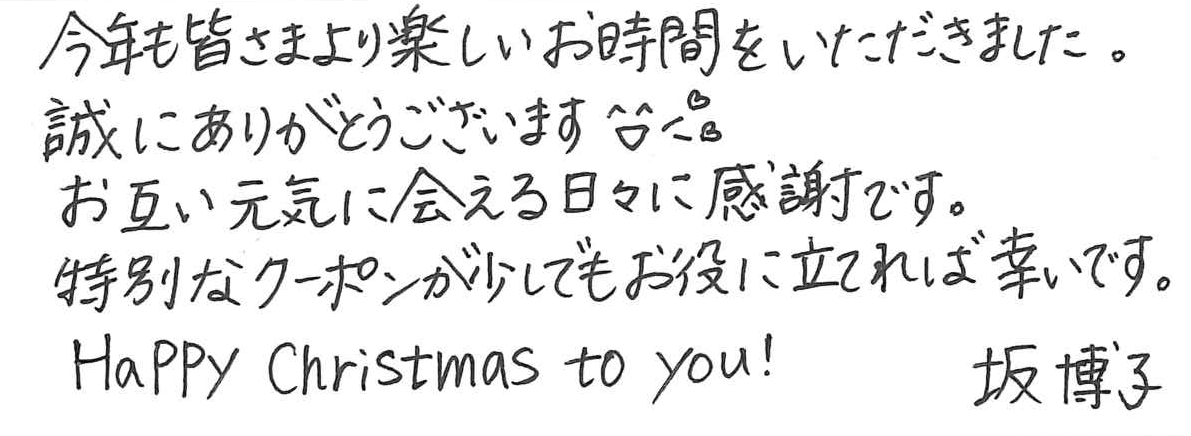 今年も皆さまより楽しいお時間をいただきました。
誠にありがとうございます
お互い元気に会える日々に感謝です。
特別なクーポンが少しでもお役に立てれば幸いです。
Happy Christmas to you!
坂博子